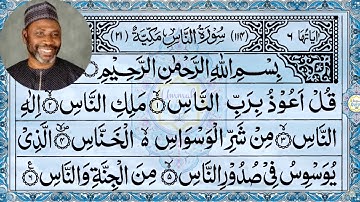 اٰیَاتُهَا ٦ (١١٤) سُوْرَةُ النَّاسِ مَكِّيَّةٌ (٢١)
بِسْمِ اللّٰهِ الرَّحْمٰنِ الرَّحِيْمِ
قُلْ اَعُوْذُ بِرَبِّ النَّاسِ ۙ١ مَلِكِ النَّاسِ ۙ٢ اِلٰهِ
النَّاسِ ۙ٣ مِنْ شَرِّ الْوَسْوَاسِ ۙ۬ الْخَنَّاسِ ۙ٤ الَّذِيْ
يُوَسْوِسُ فِيْ صُدُوْرِ النَّاسِ ۙ٥ مِنَ الْجِنَّةِ وَالنَّاسِ ٦